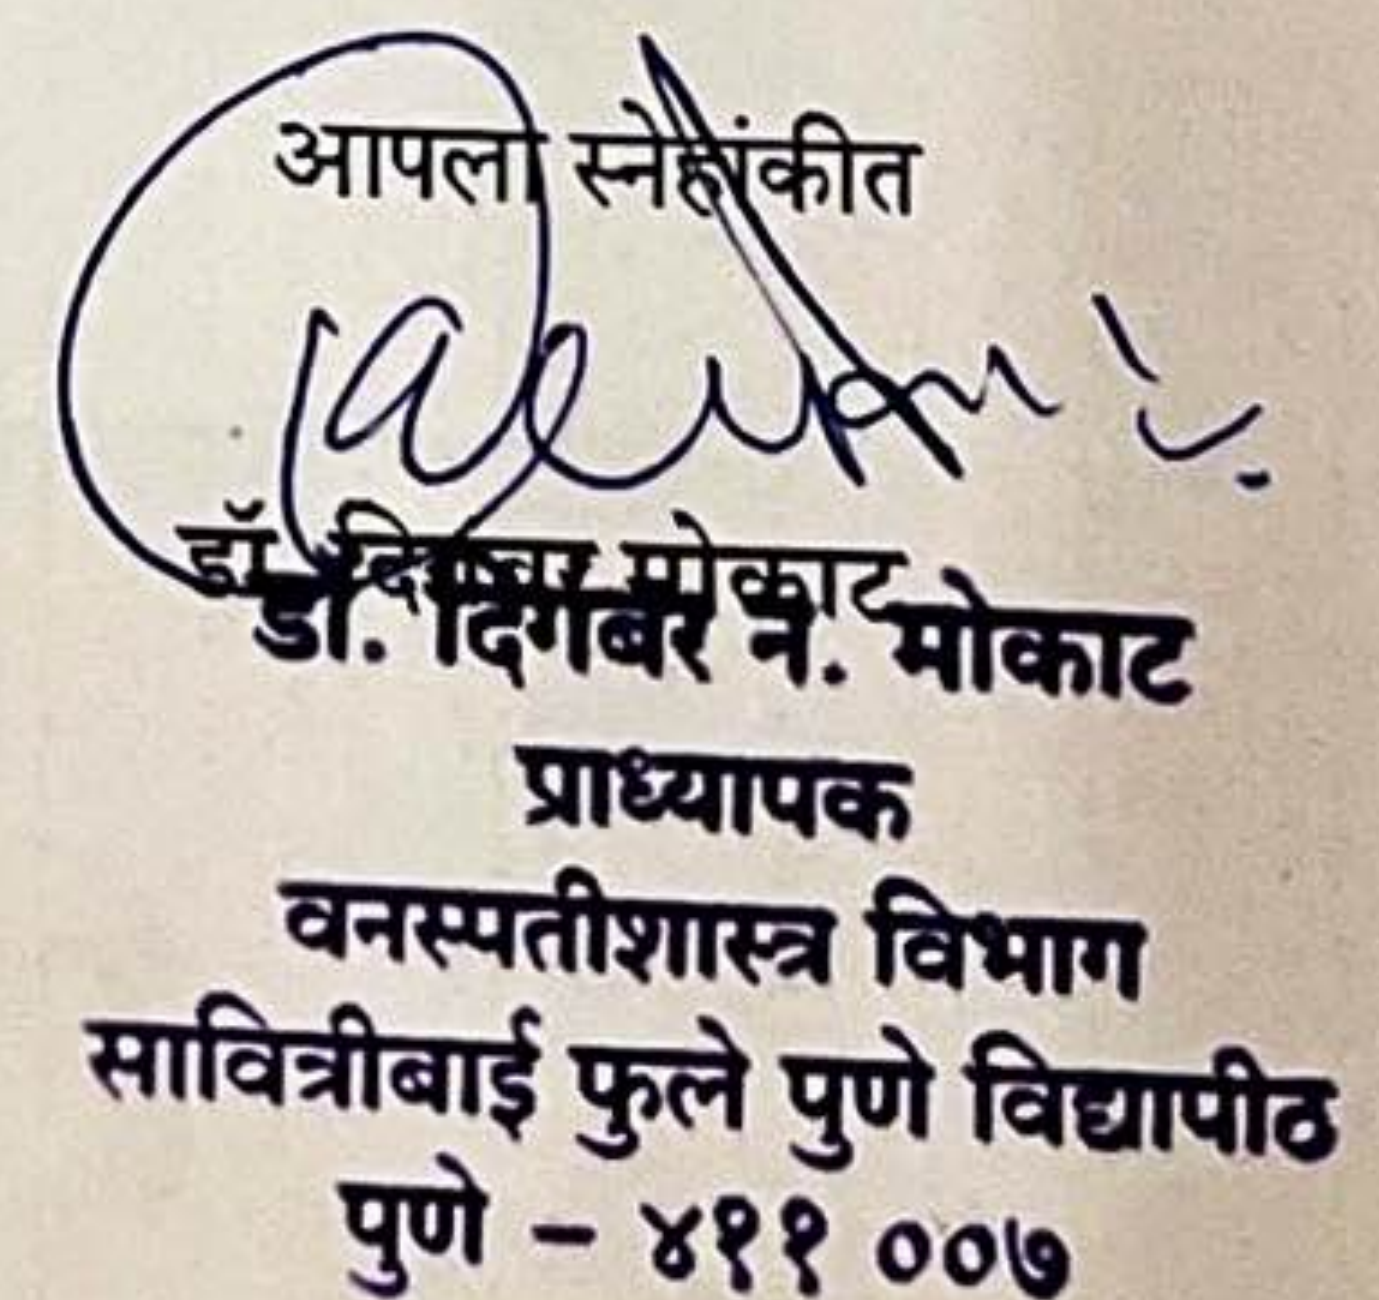 आपला स्नेहांकीत
डॉ. दिगंबर मोकाट
डॉ. दिगंबर न. मोकाट
प्राध्यापक
वनस्पतीशास्त्र विभाग
सावित्रीबाई फुले पुणे विद्यापीठ
पुणे – ४११ ००७